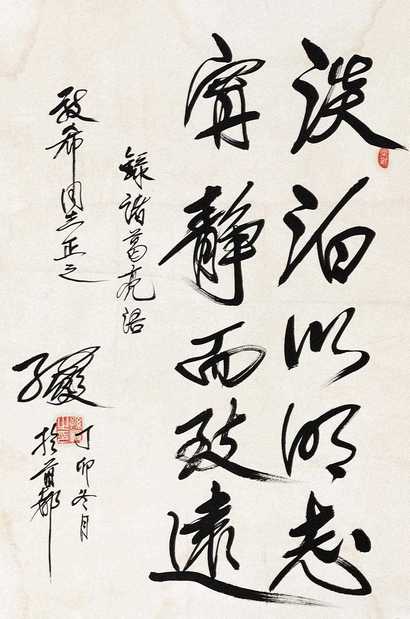 淡泊以明志
寧靜而致遠
錄諸葛亮语
致希同志正之
丁卯冬月
於首都